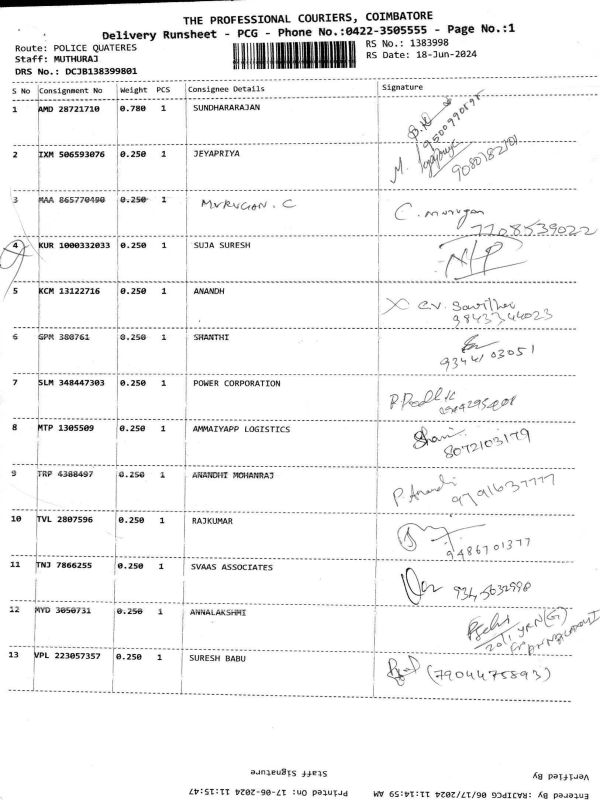 THE PROFESSIONAL COURIERS, COIMBATORE
Delivery Runsheet - PCG - Phone No.:0422-3505555 - Page No.:1
Route: POLICE QUATERES
RS No.: 1383998
Staff: MUTHURAJ
RS Date: 18-Jun-2024
DRS No.: DCJB138399801
S No Consignment No Weight PCS Consignee Details Signature
1 AMD 28721710 0.780 1 SUNDHARARAJAN
9500990595
2 IXM 506593076 0.250 1 JEYAPRIYA
9080182101
3 MAA 865770490 0.250 1 MURUGAN. C C. Murugan
7708539022
4 KUR 1000332033 0.250 1 SUJA SURESH N/P
5 KCM 13122716 0.250 1 ANANDH
9843344023
6 GPM 380761 0.250 1 SHANTHI
9344103051
7 SLM 348447303 0.250 1 POWER CORPORATION
8 MTP 1305509 0.250 1 AMMAIYAPP LOGISTICS
8072103179
9 TRP 4388497 0.250 1 ANANDHI MOHANRAJ P. Anandhi
9791637777
10 TVL 2807596 0.250 1 RAJKUMAR
9486701377
11 TNJ 7866255 0.250 1 SVAAS ASSOCIATES
12 MYD 3050731 0.250 1 ANNALAKSHMI
13 VPL 223057357 0.250 1 SURESH BABU (7904475893)
Staff Signature
Verified By
Printed On: 17-06-2024 11:15:47
Entered By :RAJIPCG 06/17/2024 11:14:59 AM